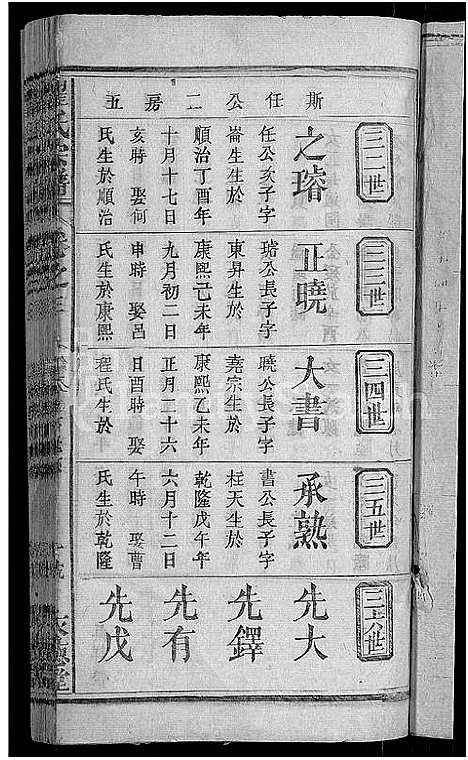 斯任公二房五
三二世
之璿
任公亥子字
崙生生於
順治丁酉年
十月十七日
亥時 娶何
氏生於順治
三三世
正曉
璿公長子字
東昇生於
康熙己未年
九月初二日
申時 娶呂
氏生於康熙
三四世
大書
曉公長子字
堯宗生於
康熙乙未年
正月二十六
日酉時 娶
程氏生於
三五世
承熟
書公長子字
柱天生於
乾隆戊午年
六月十二日
午時 娶曹
氏生於乾隆
三六世
先大
先鐸
先有
先戊